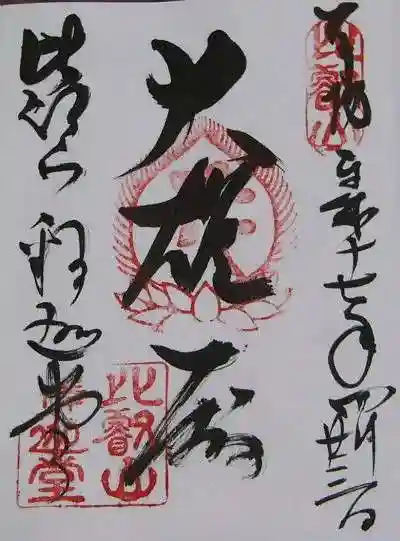 奉拝
平成十七年四月廿三日
比叡山
大雄殿
比叡山 釈迦堂
比叡山
釋迦堂